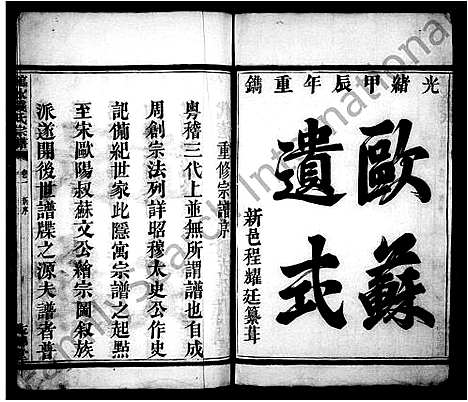 光緒甲辰年重鐫
歐蘇
遺式
新邑程耀廷纂葺
重修宗譜序
粵稽三代上並無所謂譜也自成
周創宗法列詳昭穆太史公作史
記備紀世家此隱寓宗譜之起點
至宋歐陽叔蘇文公繪宗圖叙族
派遂開後世譜牒之源夫譜者普
氏宗譜 卷一 新序
Family Search International